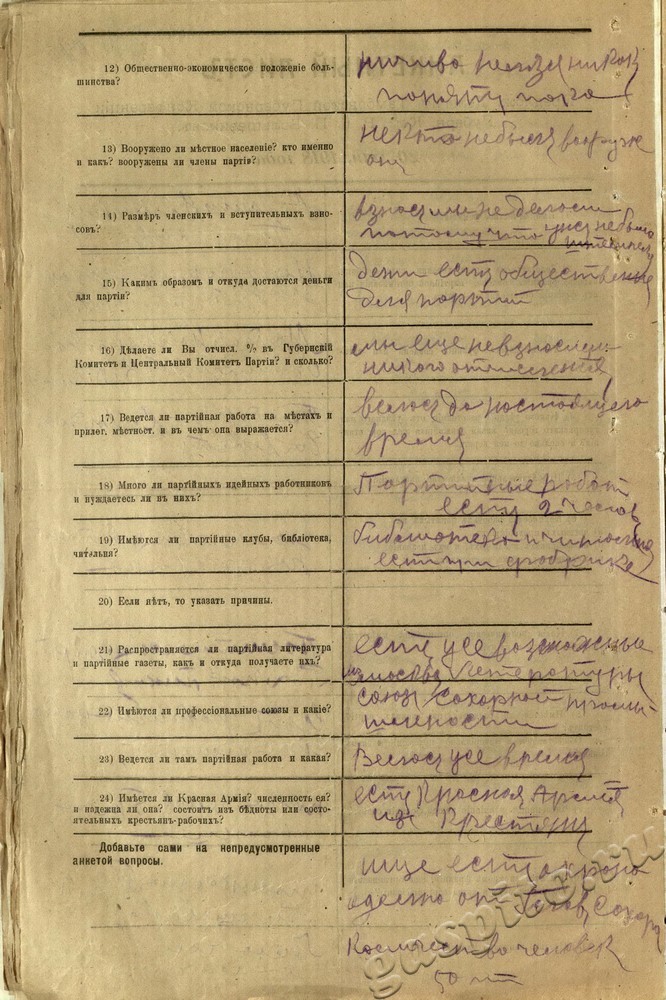 12) Общественно-экономическое положенiе боль-
шинства?
ничиво нельзя никак
понять пока
13) Вооружено ли мѣстное населенiе? кто именно
и какъ? вооружены ли члены партiи?
некто небыл вооруж
14) Размѣръ членскихъ и вступительныхъ взно-
совъ?
взноса мы не делоли
потому что унас небыло
15) Какимъ образомъ и откуда достаются деньги
для партiи?
дени есть обществение
для портии
16) Дѣлаете ли Вы отчисл. % въ Губернскiй
Комитетъ и Центральный Комитетъ Партiи? и сколько?
мы еще невзносили
никого отчисления
17) Ведется ли партiйная работа на мѣстахъ и
прилег. мѣстност. и въ чемъ она выражается?
велося до ностоящего
время
18) Много ли партiйныхъ идейныхъ работниковъ
и нуждаетесь ли въ нихъ?
Портииные робот
есть 2 часов
19) Имѣются ли партiйные клубы, библiотека,
читальня?
библиотека и читальня
есть при фобрике
20) Если нѣтъ, то указать причины.
21) Распространяется ли партiйная литература
и партiйные газеты, какъ и откуда получаете ихъ?
есть усевозможные
из москва летеротуры
22) Имѣются ли профессiональные союзы и какiе?
союз Сохорной промы
шлености
23) Ведется ли тамъ партiйная работа и какая?
Велося усе время
24) Имѣется ли Красная Армiя? численность ея?
и надежна ли она? состоитъ изъ бѣдноты или состо-
ятельныхъ крестьян-рабочихъ?
есть Красная Армия
из Крестяны
Добавьте сами на непредусмотренные
анкетой вопросы.
ище есть охрона
оделно от Сохора
Количество человек
50 ти